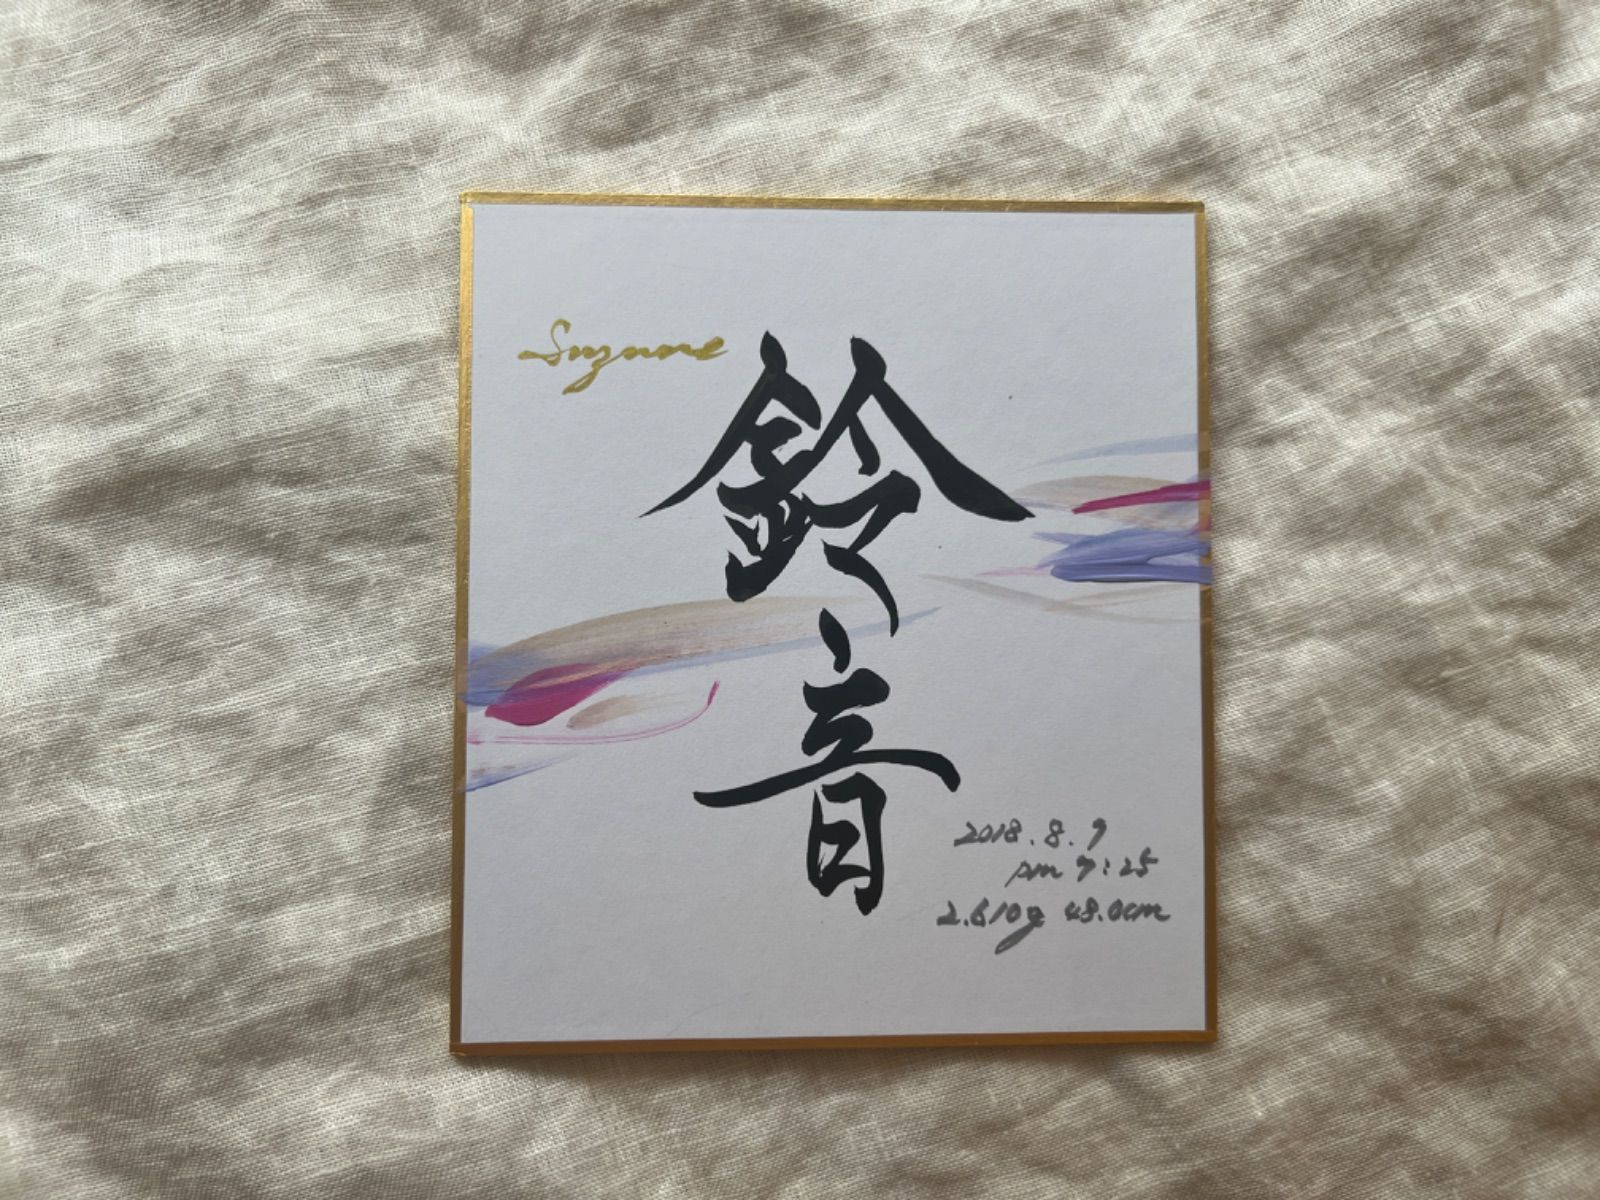 Suzune
鈴音
2018.8.9
pm 7:25
2.610g 48.0cm